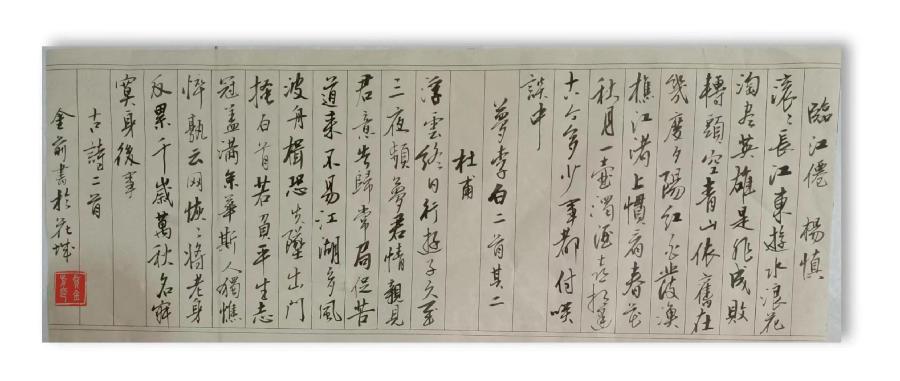 臨江僊 楊慎
滚〻長江東逝水浪花
淘尽英雄是非成敗
轉頭空青山依舊在
幾度夕陽紅白髮漁
樵江渚上慣看春花
秋月一壺濁酒喜相逢
古今多少事都付笑
談中
夢李白二首其二
杜甫
浮雲終日行遊子久不至
三夜頻夢君情親見
君意告歸常局促苦
道来不易江湖多風
波舟楫恐失墜出門
搔白首若負平生志
冠盖滿京華斯人獨憔
悴孰云网恢〻將老身
反累千歲萬秋名寂
寞身後事
古詩二首
金前書於花城